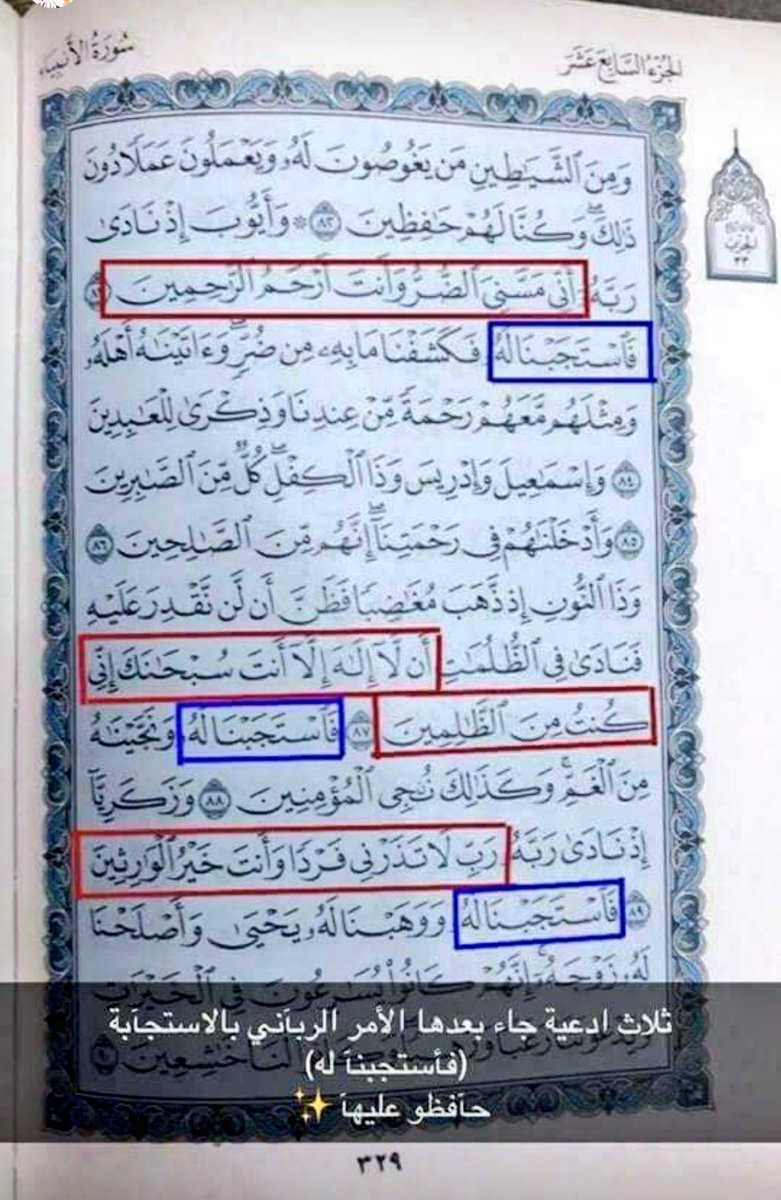 سُورَةُ الأَنبِيَاء
الجُزْءُ السَّابِعَ عَشَرَ
وَمِنَ ٱلشَّيَٰطِينِ مَن يَغُوصُونَ لَهُۥ وَيَعْمَلُونَ عَمَلًا دُونَ
ذَٰلِكَۖ وَكُنَّا لَهُمْ حَٰفِظِينَ ٨٢ ۞ وَأَيُّوبَ إِذْ نَادَىٰ
رَبَّهُۥٓ أَنِّي مَسَّنِيَ ٱلضُّرُّ وَأَنتَ أَرْحَمُ ٱلرَّٰحِمِينَ ٨٣
فَٱسْتَجَبْنَا لَهُۥ فَكَشَفْنَا مَا بِهِۦ مِن ضُرٍّۖ وَءَاتَيْنَٰهُ أَهْلَهُۥ
وَمِثْلَهُم مَّعَهُمْ رَحْمَةً مِّنْ عِندِنَا وَذِكْرَىٰ لِلْعَٰبِدِينَ
٨٤ وَإِسْمَٰعِيلَ وَإِدْرِيسَ وَذَا ٱلْكِفْلِۖ كُلٌّ مِّنَ ٱلصَّٰبِرِينَ
٨٥ وَأَدْخَلْنَٰهُمْ فِي رَحْمَتِنَآۖ إِنَّهُم مِّنَ ٱلصَّٰلِحِينَ ٨٦
وَذَا ٱلنُّونِ إِذ ذَّهَبَ مُغَٰضِبًا فَظَنَّ أَن لَّن نَّقْدِرَ عَلَيْهِ
فَنَادَىٰ فِي ٱلظُّلُمَٰتِ أَن لَّآ إِلَٰهَ إِلَّآ أَنتَ سُبْحَٰنَكَ إِنِّي
كُنتُ مِنَ ٱلظَّٰلِمِينَ ٨٧ فَٱسْتَجَبْنَا لَهُۥ وَنَجَّيْنَٰهُ
مِنَ ٱلْغَمِّۚ وَكَذَٰلِكَ نُۨجِي ٱلْمُؤْمِنِينَ ٨٨ وَزَكَرِيَّآ
إِذْ نَادَىٰ رَبَّهُۥ رَبِّ لَا تَذَرْنِي فَرْدًا وَأَنتَ خَيْرُ ٱلْوَٰرِثِينَ
٨٩ فَٱسْتَجَبْنَا لَهُۥ وَوَهَبْنَا لَهُۥ يَحْيَىٰ وَأَصْلَحْنَا
لَهُۥ زَوْجَهُۥٓۚ إِنَّهُمْ كَانُوا۟ يُسَٰرِعُونَ فِي ٱلْخَيْرَٰتِ
ثلاث ادعية جاء بعدها الأمر الربآني بالاستجآبة
(فأستجبنآ له)
حآفظو عليهآ ✨
خَٰشِعِينَ ٩٠
٣٢٩